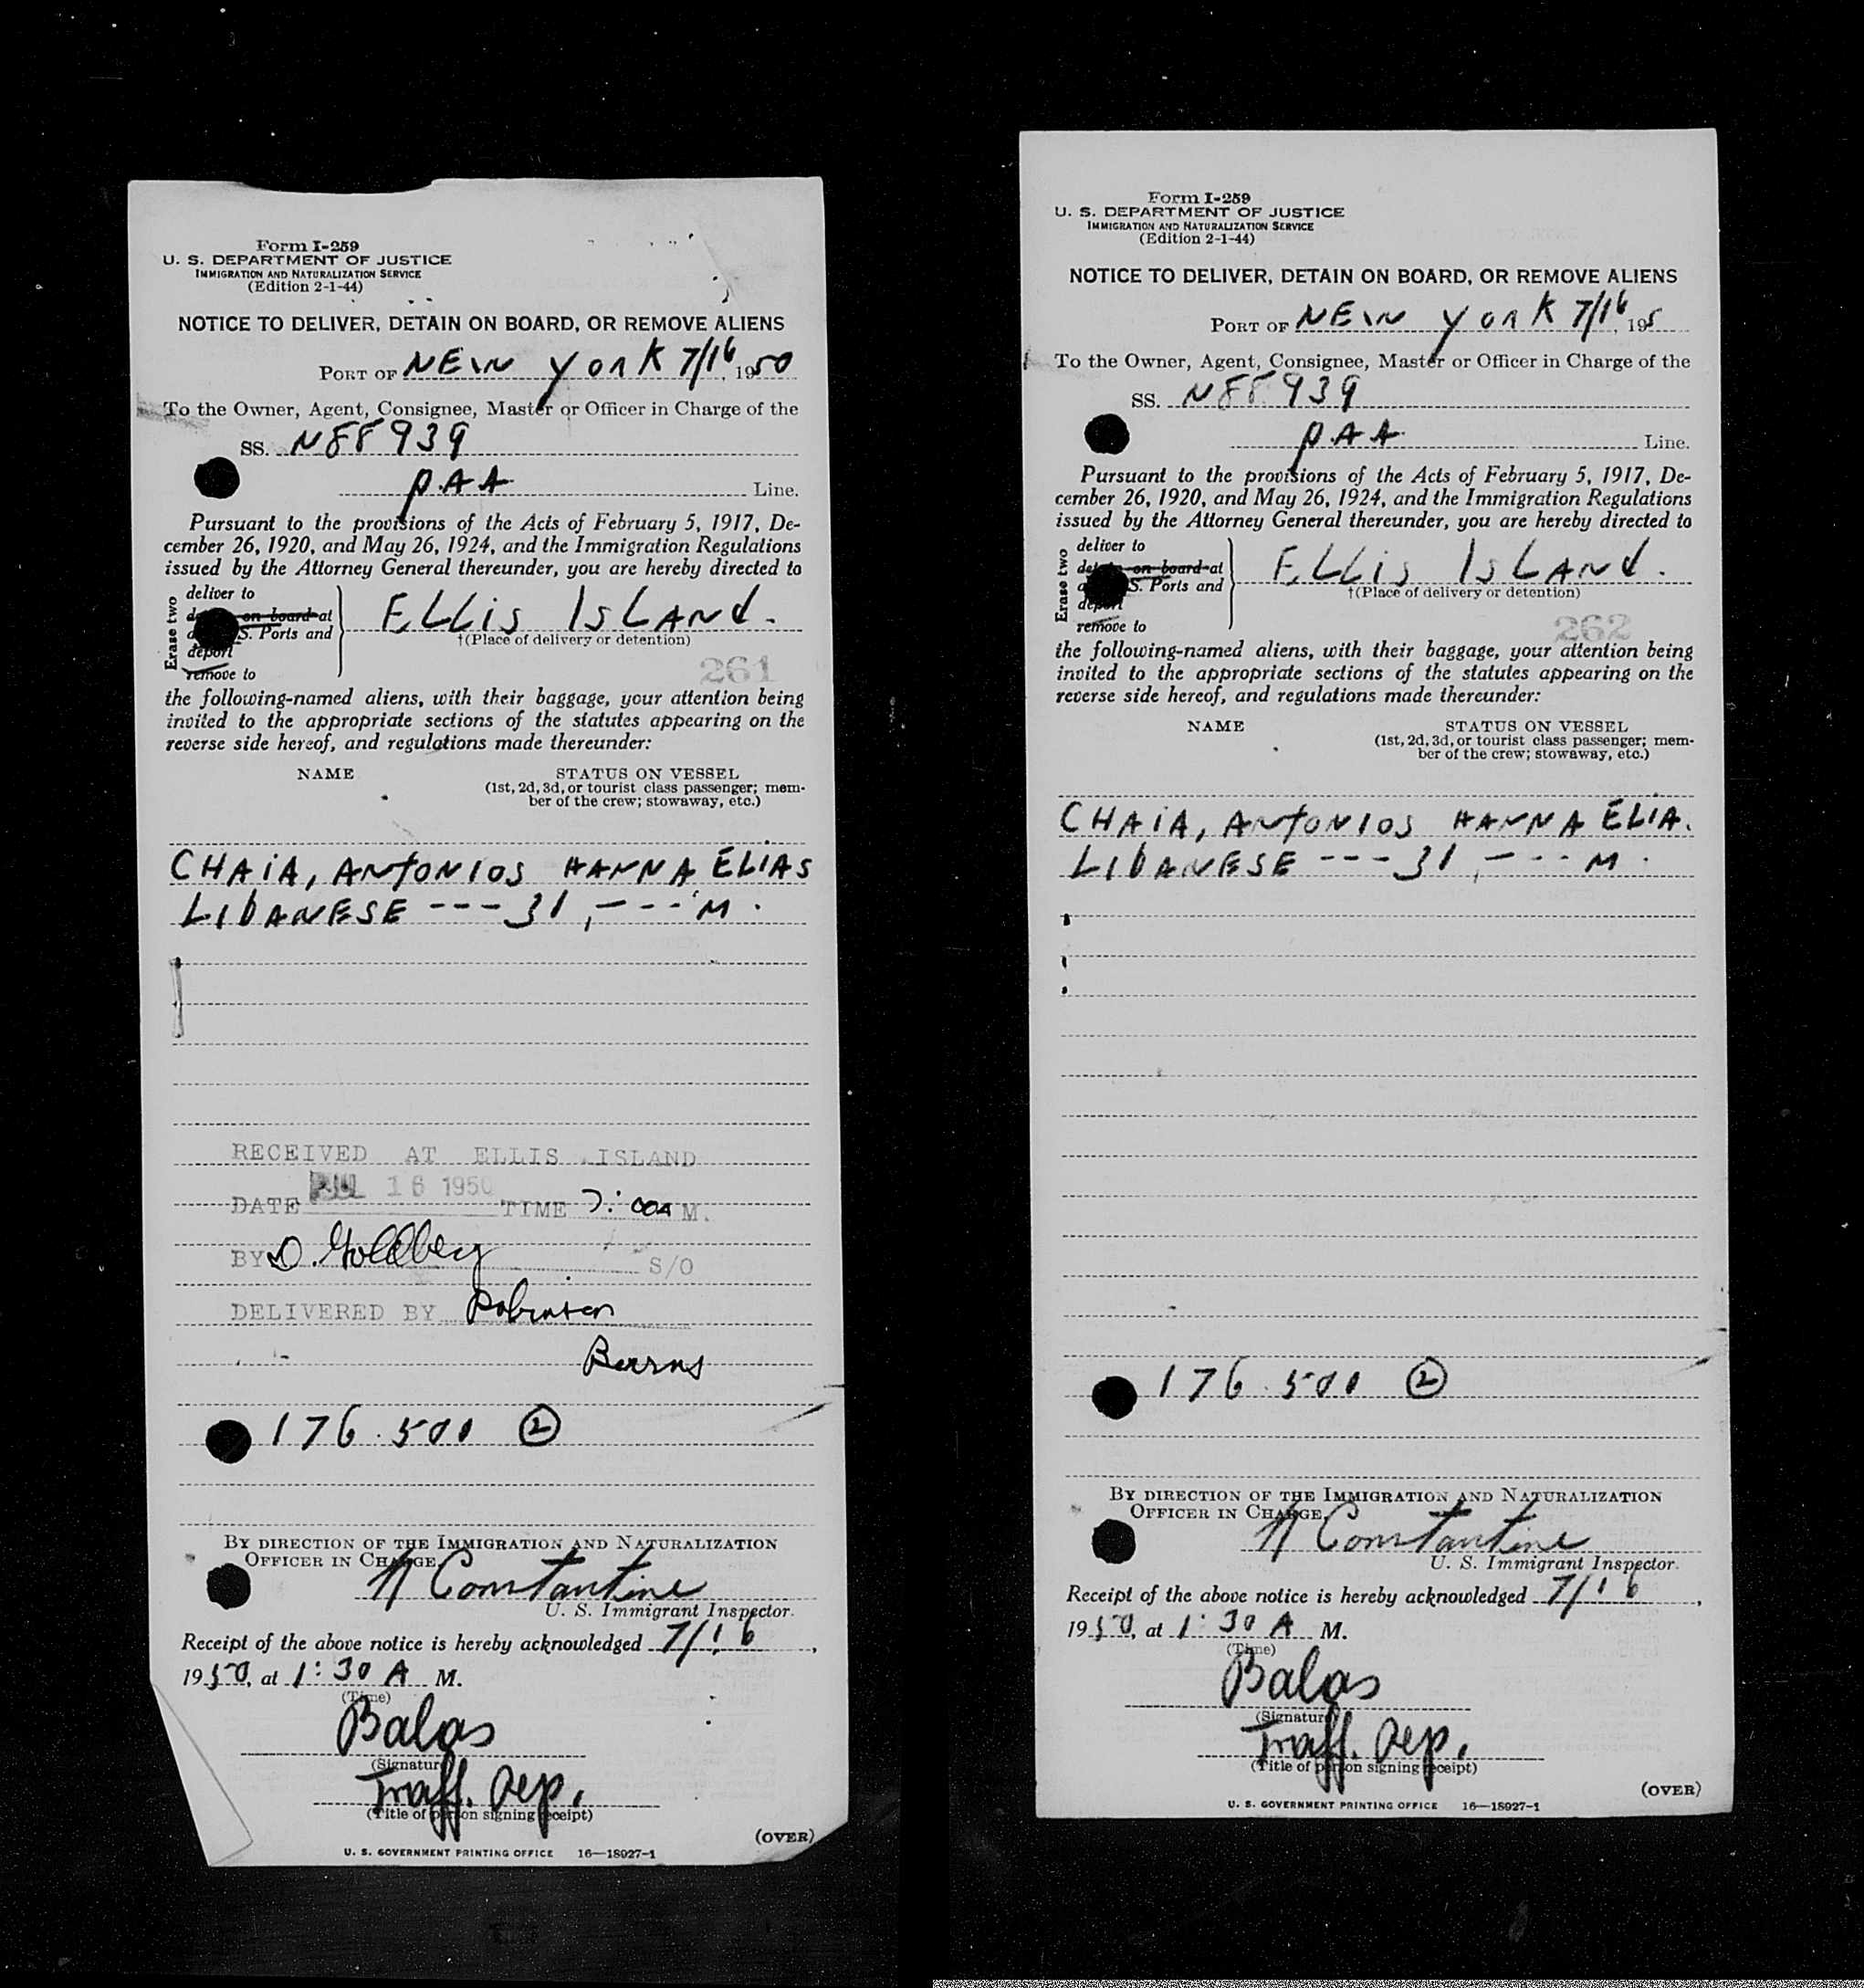 Form I-259
U. S. DEPARTMENT OF JUSTICE
IMMIGRATION AND NATURALIZATION SERVICE
(Edition 2-1-44)
NOTICE TO DELIVER, DETAIN ON BOARD, OR REMOVE ALIENS
PORT OF NEW YORK 7/16, 1950
To the Owner, Agent, Consignee, Master or Officer in Charge of the
SS. N88939
PAA Line.
Pursuant to the provisions of the Acts of February 5, 1917, De-
cember 26, 1920, and May 26, 1924, and the Immigration Regulations
issued by the Attorney General thereunder, you are hereby directed to
Erase two
deliver to
on board at
S. Ports and
deport
remove to
ELLIS ISLANd.
†(Place of delivery or detention)
261
the following-named aliens, with their baggage, your attention being
invited to the appropriate sections of the statutes appearing on the
reverse side hereof, and regulations made thereunder:
NAME STATUS ON VESSEL
(1st, 2d, 3d, or tourist class passenger; mem-
ber of the crew; stowaway, etc.)
CHAiA, ANtONIOS HANNA ELIAS
LIbANESE --- 31, --- M.
RECEIVED AT ELLIS ISLAND
DATE JUL 16 1950 TIME 7:00A M.
BY D. Goldberg S/O
DELIVERED BY Robinson
Burns
176.501 ②
BY DIRECTION OF THE IMMIGRATION AND NATURALIZATION
OFFICER IN CHARGE
N Constantine
U. S. Immigrant Inspector.
Receipt of the above notice is hereby acknowledged 7/16,
1950, at 1:30 A M.
(Time)
Balas
(Signature)
Traff. Rep.
(Title of person signing receipt)
(OVER)
U. S. GOVERNMENT PRINTING OFFICE 16—18927-1
Form I-259
U. S. DEPARTMENT OF JUSTICE
IMMIGRATION AND NATURALIZATION SERVICE
(Edition 2-1-44)
NOTICE TO DELIVER, DETAIN ON BOARD, OR REMOVE ALIENS
PORT OF NEW YORK 7/16, 195
To the Owner, Agent, Consignee, Master or Officer in Charge of the
SS. N88939
PAA Line.
Pursuant to the provisions of the Acts of February 5, 1917, De-
cember 26, 1920, and May 26, 1924, and the Immigration Regulations
issued by the Attorney General thereunder, you are hereby directed to
Erase two
deliver to
on board at
S. Ports and
deport
remove to
ELLIS ISLANd.
†(Place of delivery or detention)
262
the following-named aliens, with their baggage, your attention being
invited to the appropriate sections of the statutes appearing on the
reverse side hereof, and regulations made thereunder:
NAME STATUS ON VESSEL
(1st, 2d, 3d, or tourist class passenger; mem-
ber of the crew; stowaway, etc.)
CHAiA, ANtONIOS HANNA ELIA.
LIbANESE --- 31, --- M.
176.501 ②
BY DIRECTION OF THE IMMIGRATION AND NATURALIZATION
OFFICER IN CHARGE
N Constantine
U. S. Immigrant Inspector.
Receipt of the above notice is hereby acknowledged 7/16,
1950, at 1:30 A M.
(Time)
Balas
(Signature)
Traff. Rep.
(Title of person signing receipt)
(OVER)
U. S. GOVERNMENT PRINTING OFFICE 16—18927-1